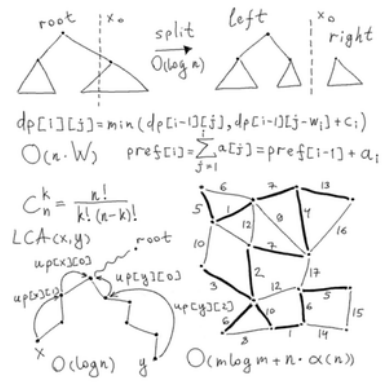 root
x₀
split
O(log n)
left
x₀
right
dp[i][j]=min(dp[i-1][j],dp[i-1][j-wᵢ]+cᵢ)
O(n·W)
pref[i]=∑ᵢⱼ₌₁a[j]=pref[i-1]+aᵢ
Cₙᵏ=n!/k!(n-k)!
LCA(x,y)
root
up[x][0]
up[y][0]
up[x][1]
up[y][2]
x
y
O(logn)
6
7
13
5
1
12
8
4
16
10
7
3
2
17
12
6
5
6
10
8
1
14
15
O(mlogm+n·α(n))